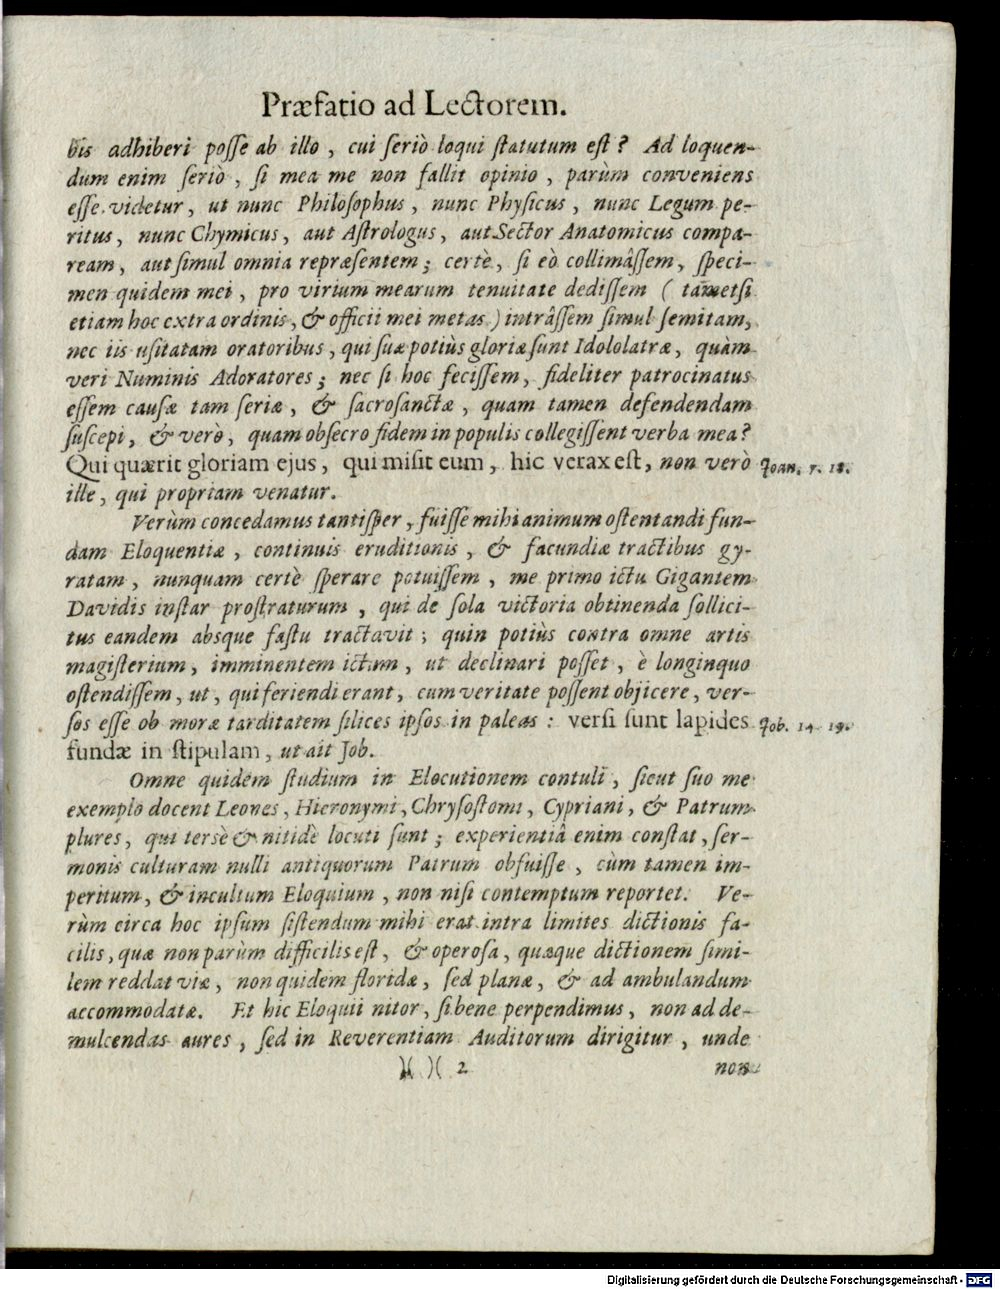 Præfatio ad Lectorem.
bis adhiberi posse ab illo, cui seriò loqui statutum est? Ad loquen-
dum enim seriò, si mea me non fallit opinio, parùm conveniens
esse videtur, ut nunc Philosophus, nunc Physicus, nunc Legum pe-
ritus, nunc Chymicus, aut Astrologus, aut Sector Anatomicus compa-
ream, aut simul omnia repræsentem; certè, si eò collimâssem, speci-
men quidem mei, pro virium mearum tenuitate dedissem (tametsi
etiam hoc extra ordinis, & officii mei metas) intrâssem simul semitam,
nec iis usitatam oratoribus, qui suæ potiùs gloriæ sunt Idololatræ, quàm
veri Numinis Adoratores; nec si hoc fecissem, fideliter patrocinatus
essem causæ tam seriæ, & sacrosanctæ, quam tamen defendendam
suscepi, & verò, quam obsecro fidem in populis collegissent verba mea?
Qui quærit gloriam ejus, qui misit eum, hic verax est, non verò Joan. 7. 18.
ille, qui propriam venatur.
Verùm concedamus tantisper, fuisse mihi animum ostentandi fun-
dam Eloquentiæ, continuis eruditionis, & facundiæ tractibus gy-
ratam, nunquam certè sperare potuissem, me primo ictu Gigantem
Davidis instar prostraturum, qui de sola victoria obtinenda sollici-
tus eandem absque fastu tractavit; quin potiùs contra omne artis
magisterium, imminentem ictum, ut declinari posset, è longinquo
ostendissem, ut, qui feriendi erant, cum veritate possent objicere, ver-
sos esse ob moræ tarditatem silices ipsos in paleas: versi sunt lapides Job. 14. 19.
fundæ in stipulam, ut ait Job.
Omne quidem studium in Elocutionem contuli, sicut suo me
exemplo docent Leones, Hieronymi, Chrysostomi, Cypriani, & Patrum
plures, qui tersè & nitidè locuti sunt; experientiâ enim constat, ser-
monis culturam nulli antiquorum Patrum obfuisse, cùm tamen im-
peritum, & incultum Eloquium, non nisi contemptum reportet. Ve-
rùm circa hoc ipsum sistendum mihi erat intra limites dictionis fa-
cilis, quæ non parùm difficilis est, & operosa, quæque dictionem simi-
lem reddat viæ, non quidem floridæ, sed planæ, & ad ambulandum
accommodatæ. Et hic Eloquii nitor, si bene perpendimus, non ad de-
mulcendas aures, sed in Reverentiam Auditorum dirigitur, unde
)( )( 2 non
Digitalisierung gefördert durch die Deutsche Forschungsgemeinschaft - DFG